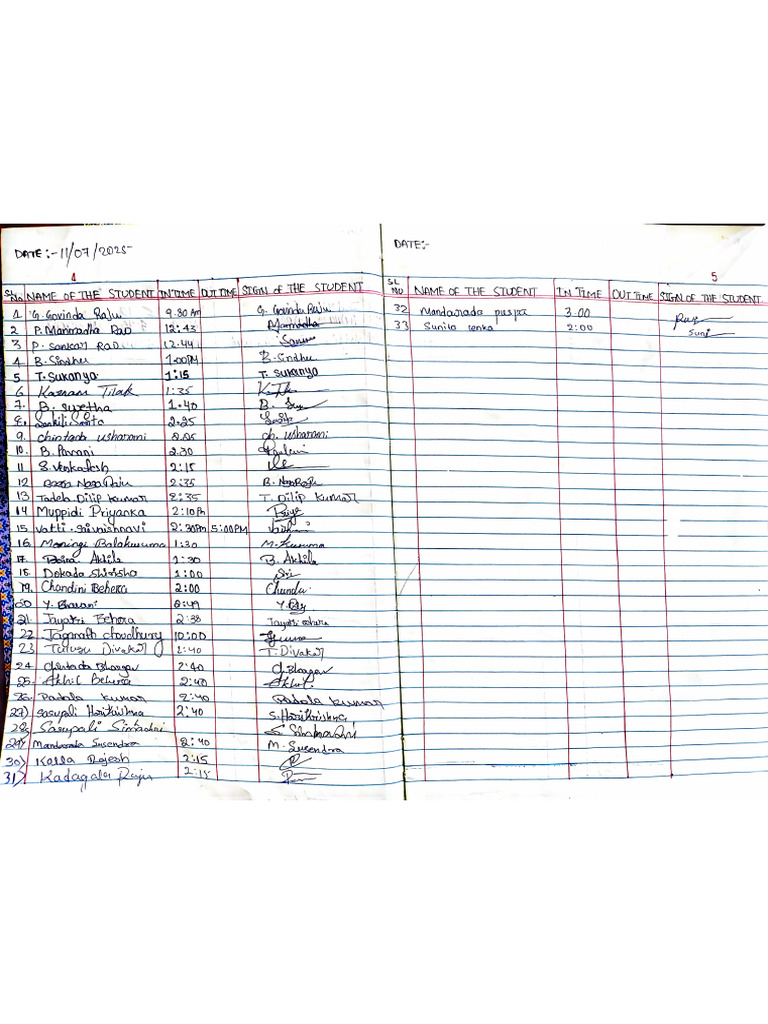 DATE:-11/07/2025
4
SL No NAME OF THE STUDENT IN TIME OUT TIME SIGN OF THE STUDENT
1 G. Govinda Raju 9.30 Am G. Govinda Raju
2 P. Manmadha Rao 12:43 Manmadha
3 P. Sankar Rao 12.44
4 B. Sindhu 1.00PM B. Sindhu
5 T. Sukanya 1:15 T. Sukanya
6 Karnam Tilak 1:35
7. B. Swetha 1.40 B.
8. Sankili Santa 2.25
9. Chintada usharani 2.25 ch. usharani
10. B. Pavani 2.30
11 S. Venkatesh 2:15
12 Naga Raju 2:35 B. Naga Raju
13 Tadela Dilip kumar 2:35 T. Dilip kumar
14 Muppidi Priyanka 2:10Pm Priya
15 Vatti. Srivaishnavi 2:30Pm 5:00PM
16. Moningi Balakusuma 1:30 M. Kusuma
17. Boina. Akhila 1:30 B. Akhila
18. Dokada Shirisha 1:00 Siri
19. Chandini Behera 2:00 Chandu
20 Y. Bhavani Y.
21. Jayatri Behera 2:38 Jayatri behara
22. Jagnath choudhury 10:00
23 Tulugu Divakar 1:40 T. Divakar
24. Chintada Bhargav 2:40 Ch. Bhargav
25. Akhil Behera 2:40 Akhil.
26. Padala kumar 2:40 Padala kumar
27) Sasupali Harikrishna 2:40 S. Harikrishna
28) Sasupali Simadri S.
29) Mandarada Susendra 2:40 M. Susendra
30) Kolla Rajesh 2:15
31) Kadagala Raju 2:15
DATE:-
5
SL NO NAME OF THE STUDENT IN TIME OUT TIME SIGN OF THE STUDENT
32 Mandarada puspa 3.00
33 Sunila lenka 2:00 Suni